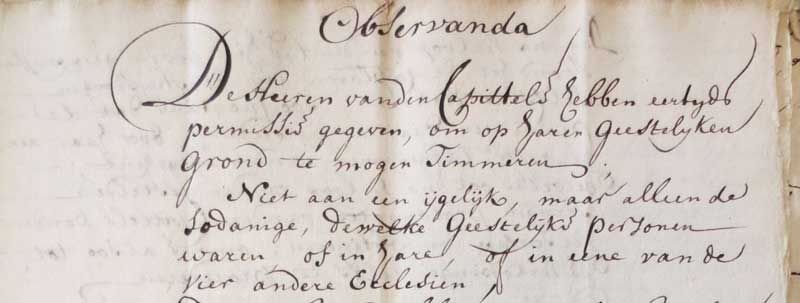 Observanda
De Heeren vanden Capittels hebben eertyds
permissie gegeven, om op haren Geestelyken
Grond te mogen Timmeren;
Niet aan een ijgelijk, maar alleen de
sodanige, dewelke Geestelyke Personen
waren of in hare, of in eene van de
vier andere Ecclesien,